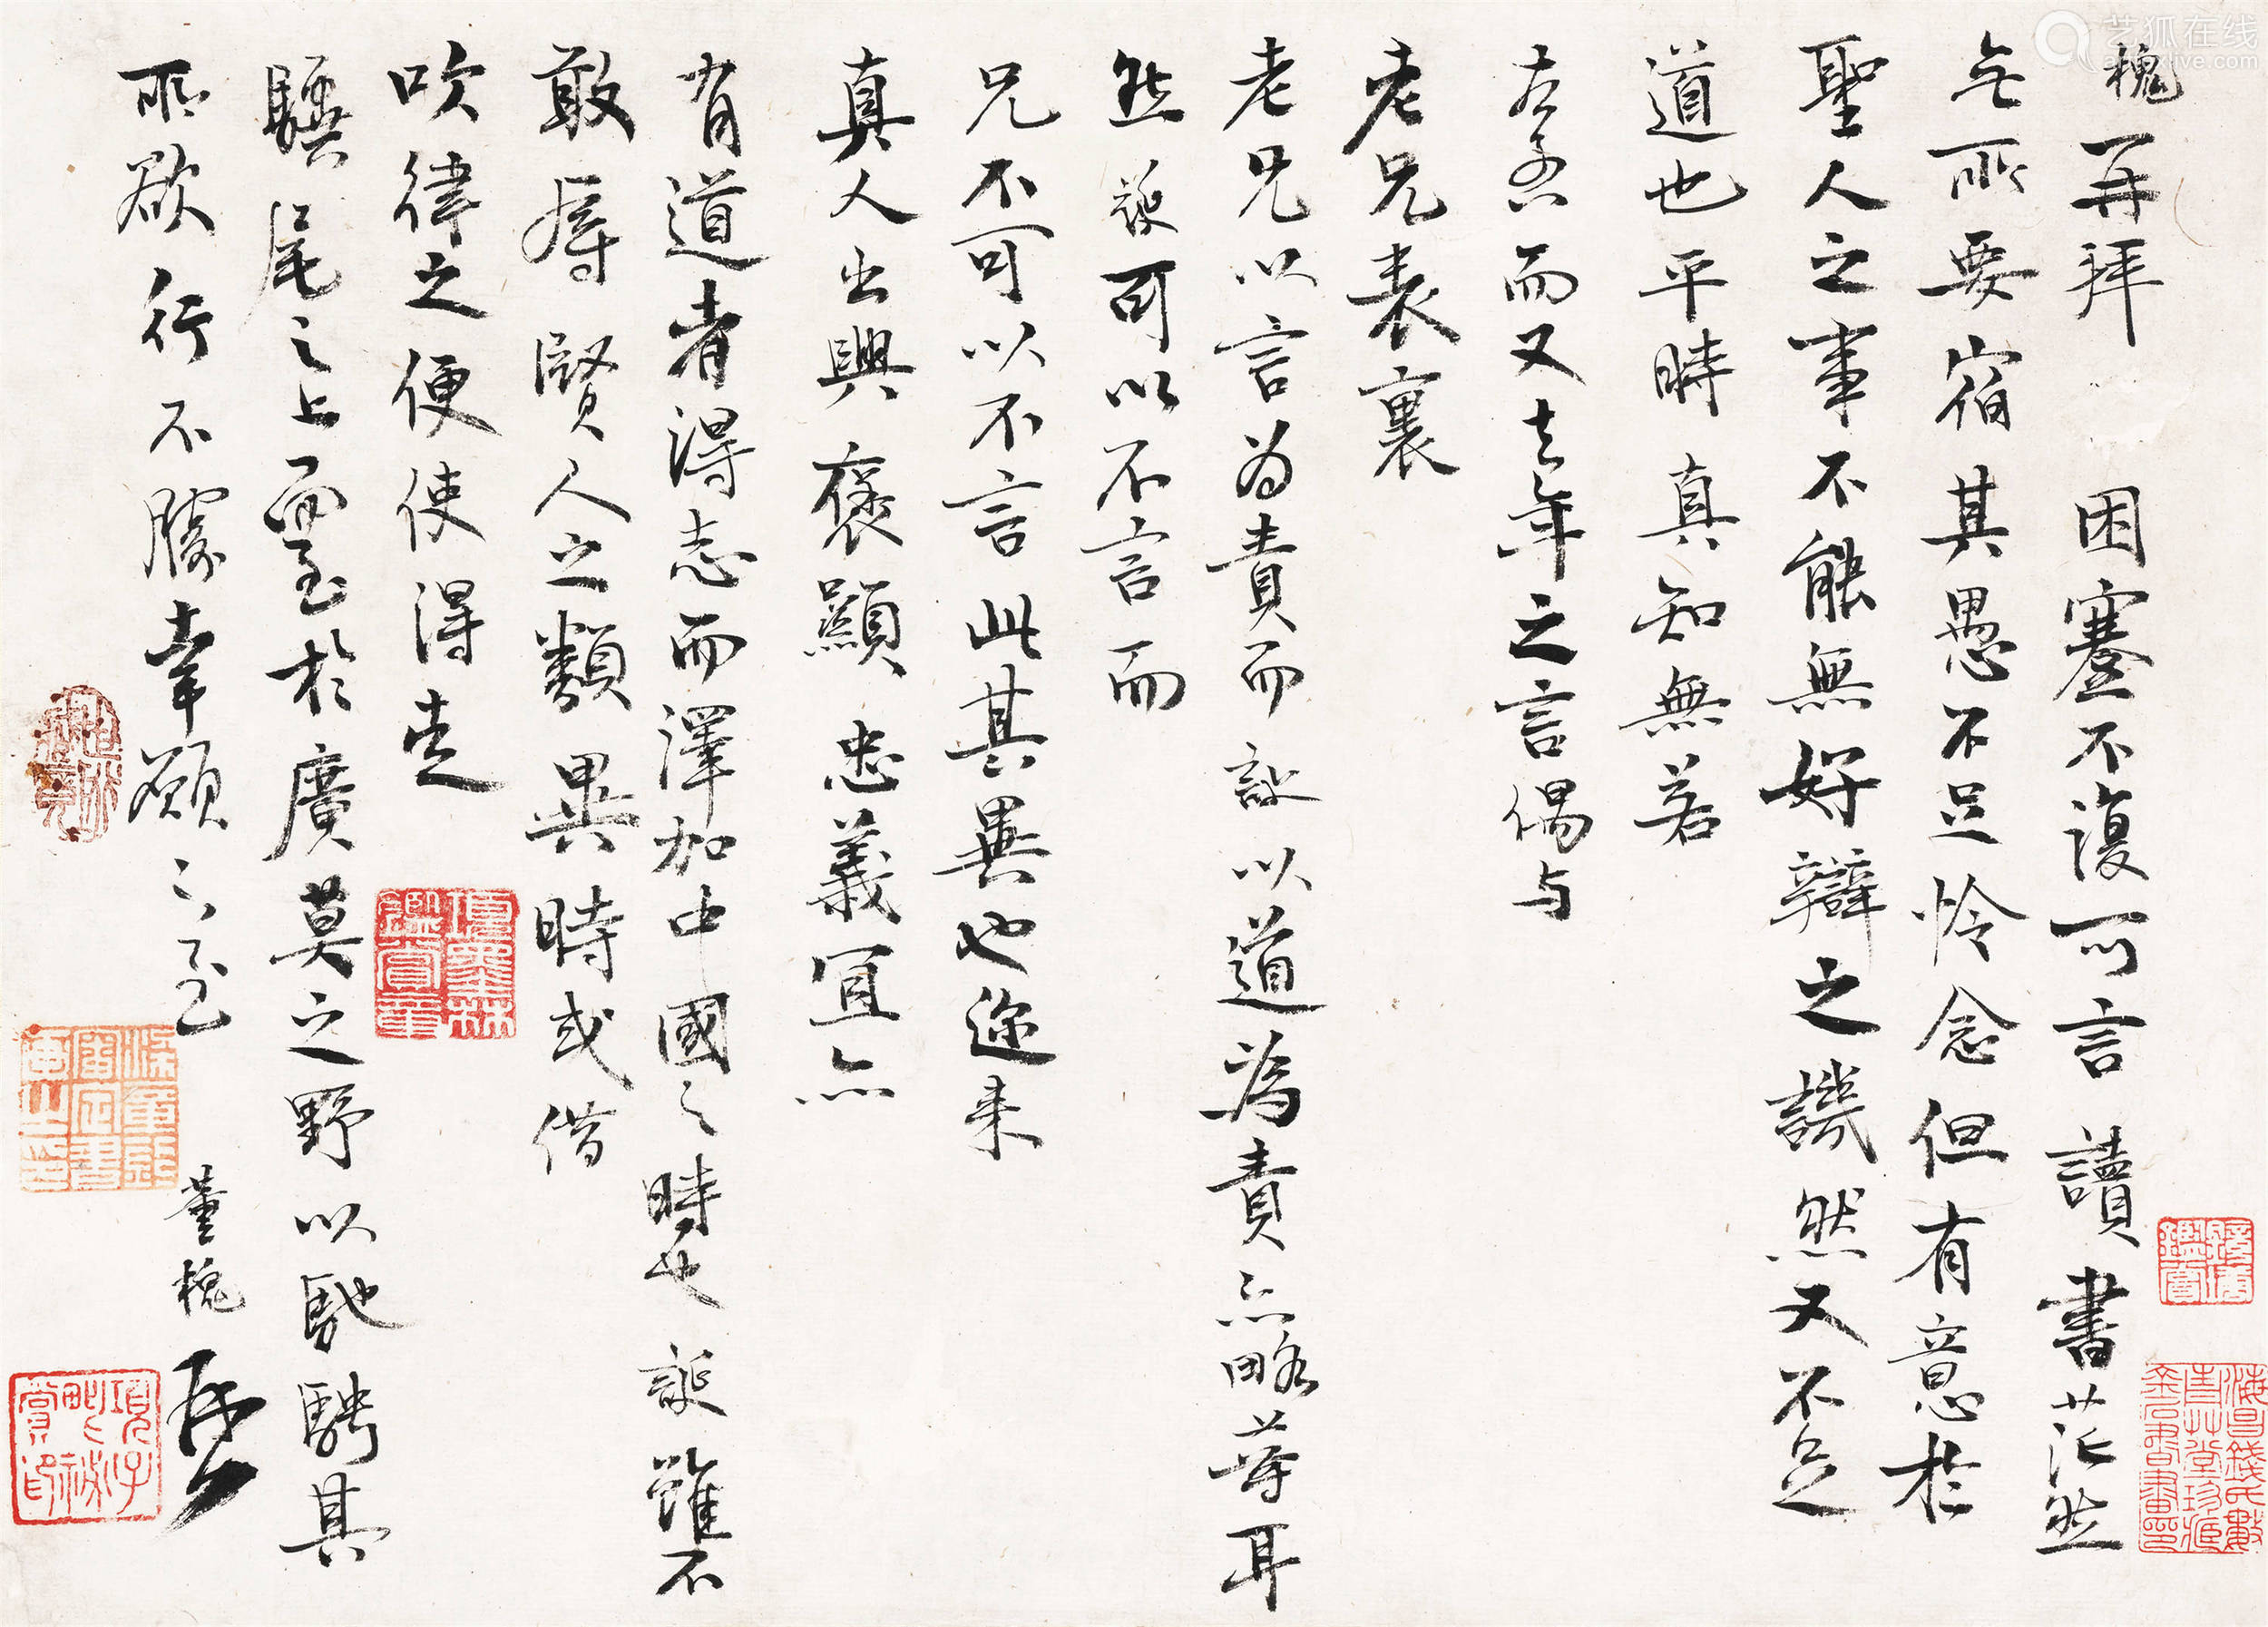 槐再拜 困蹇不復可言 讀書茫然
無所要宿 其愚不足怜念 但有意於
聖人之事 不能無好辯之譏 然又不足
道也 平時真知無若
左右 而又去年之言偶与
老兄表裏
老兄以言為責 而 以道為責 亦略等耳
然 可以不言 而
兄不可以不言 此其異也 迩来
真人出興 褒顯忠義 宜亦
有道者得志而澤加中國之時也 誕雖不
敢辱賢人之類 異時或借
吹律之便 使得走
驥尾之上 置於廣莫之野 以馳騁其
所欲行 不勝幸願之至
董槐
項墨林鑑賞章
項子毗祕賞印
艺狐在线
artfoxlive.com